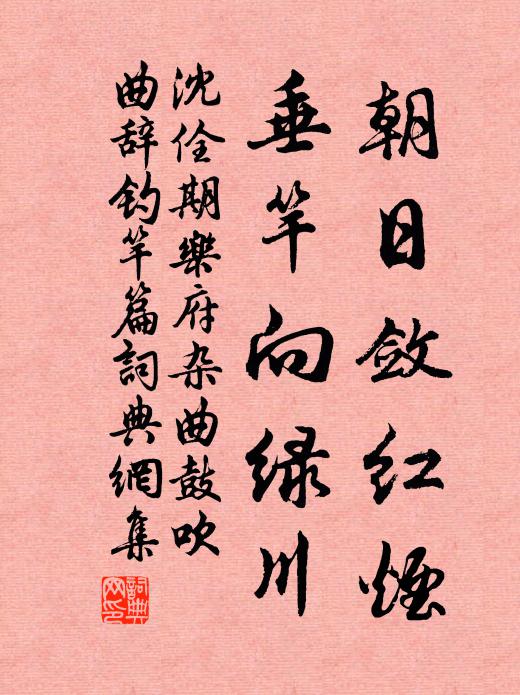 朝日敛红烟
垂竿向绿川
沈佺期樂府杂曲鼓吹
曲辞钓竿篇詞典網集
詞典
网印